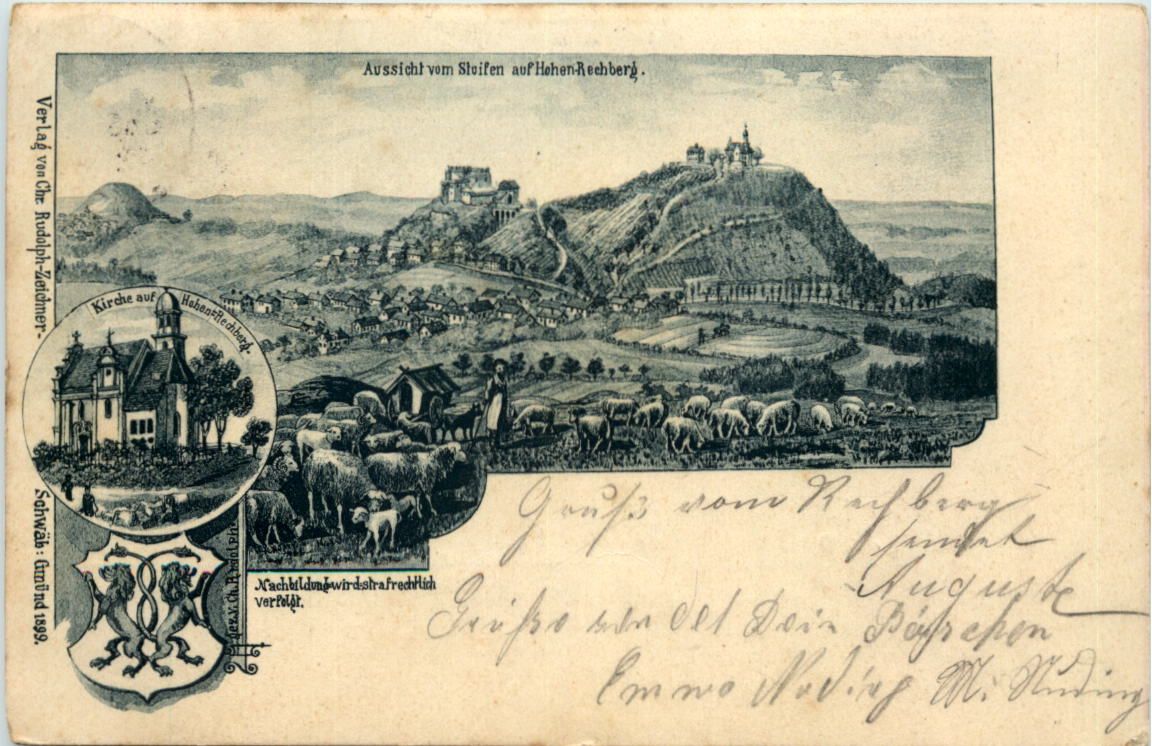 Aussicht vom Stuifen auf Hohen-Rechberg.
Verlag von Chr. Rudolph-Zeichner-
Schwäb: Gmünd 1899.
Kirche auf Hohen-Rechberg.
gez. v. Ch. Rudolph
Nachbildung wird strafrechtlich
verfolgt.
Gruß vom Rechberg
sendet
Auguste
Grüße sendet Dein
Emma Nuding M. Nuding